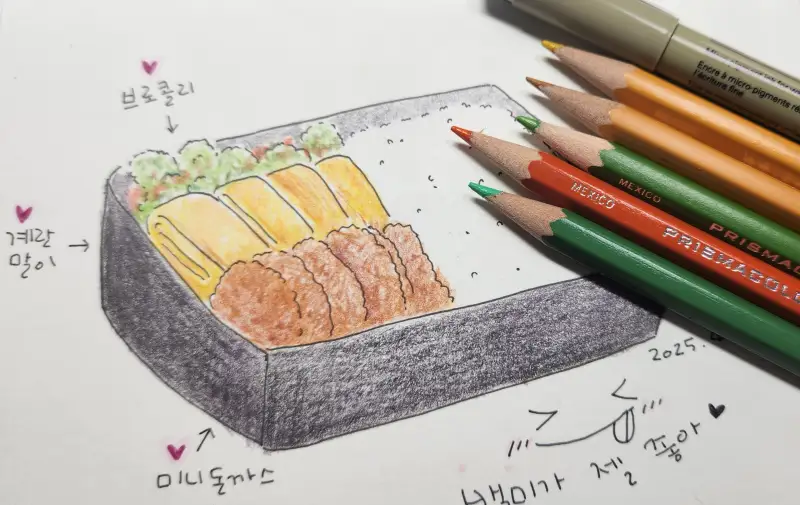 브로콜리
계란
말이
미니돈까스
백미가 젤 좋아
2025.
MEXICO
PRISMACOLO
MEXICO
PRISMA
Encre à micro-pigments
l'écriture fine